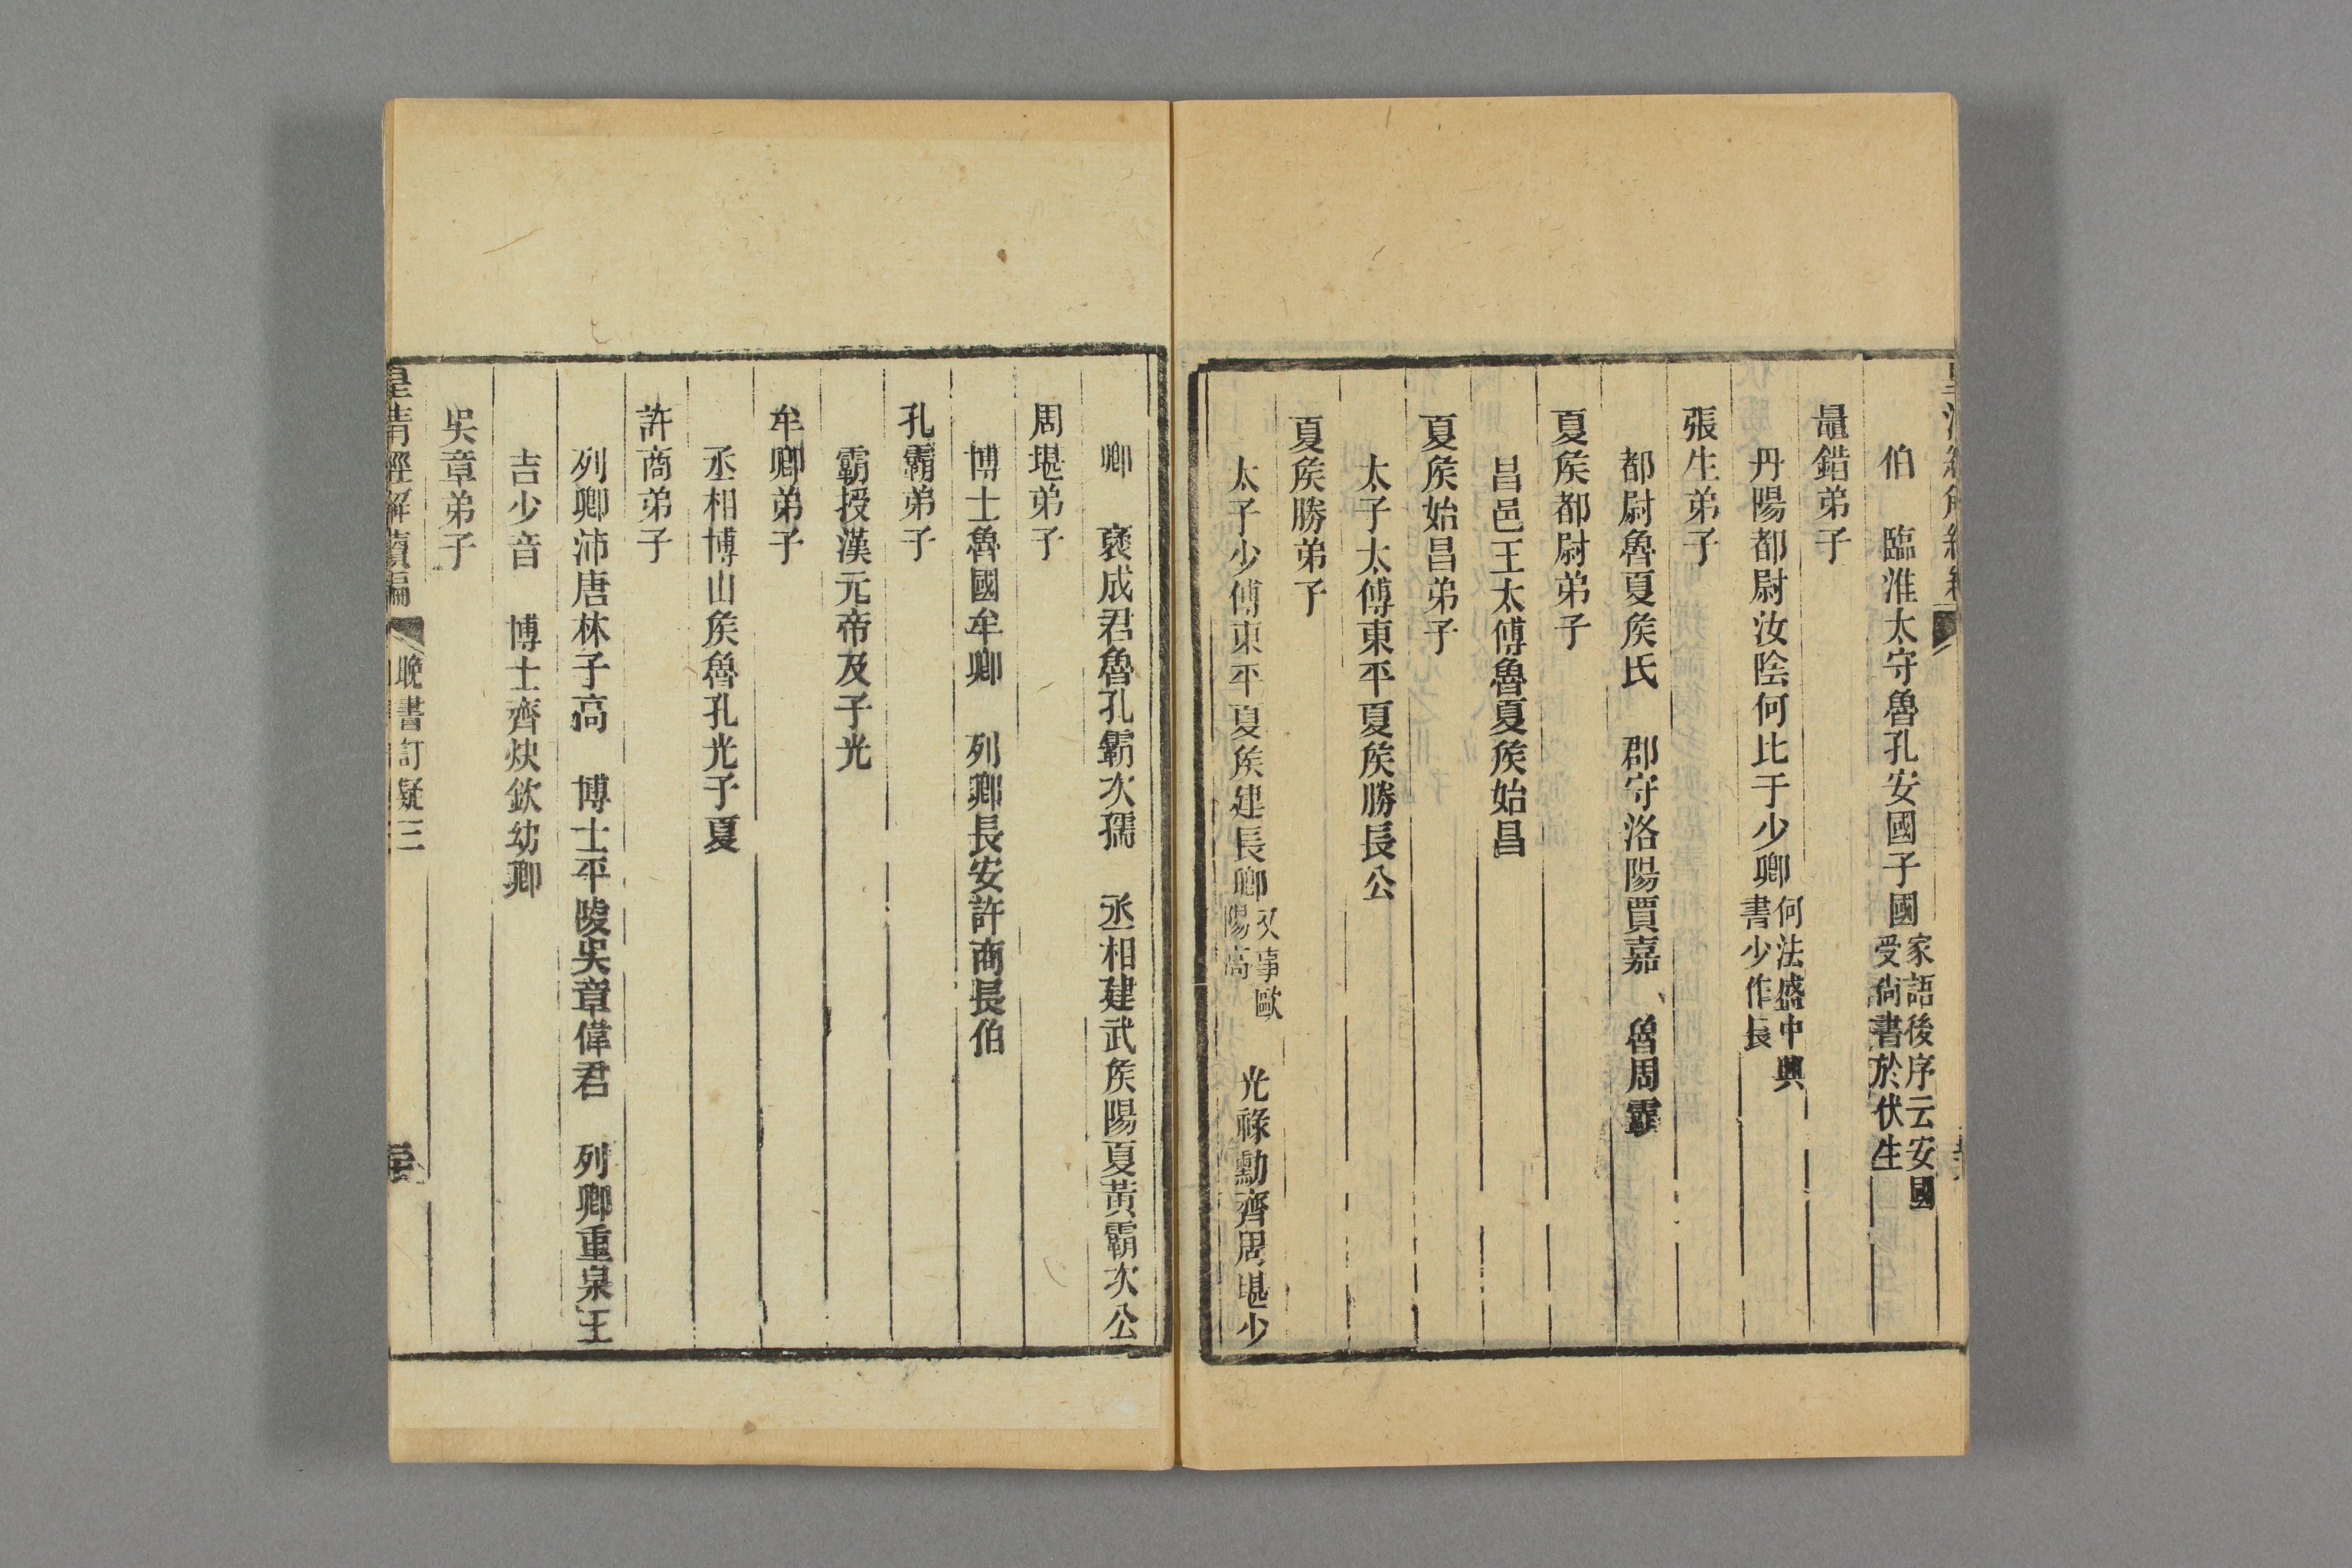 伯　臨淮太守魯孔安國子國家語後序云安國受尙書於伏生
鼂錯弟子
丹陽都尉汝陰何比于少卿何法盛中興書少作長
張生弟子
都尉魯夏矦氏　郡守洛陽賈嘉　魯周霸
夏矦都尉弟子
昌邑王太傅魯夏矦始昌
夏矦始昌弟子
太子太傅東平夏矦勝長公
夏矦勝弟子
太子少傅東平夏矦建長卿又事歐陽高　光祿勳齊周堪少
卿　襃成君魯孔霸次孺　丞相建武矦陽夏黃霸次公
周堪弟子
博士魯國牟卿　列卿長安許商長伯
孔霸弟子
霸授漢元帝及子光
牟卿弟子
丞相博山矦魯孔光子夏
許商弟子
列卿沛唐林子高　博士平陵吳章偉君　列卿重泉王
吉少音　博士齊炔欽幼卿
吳章弟子
皇淸經解續編　晚書訂疑三